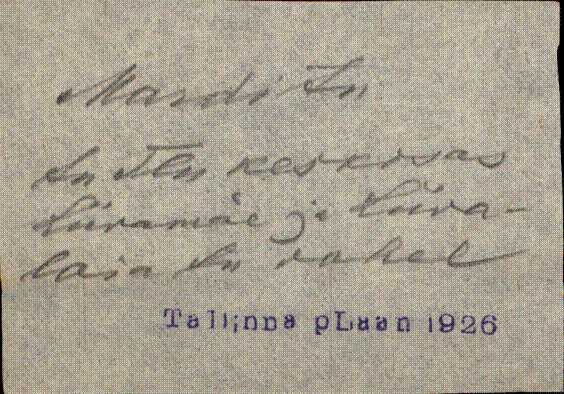 Mardi tn
tn Tln keskosas
Liivamäe ja Liiva-
laia tn vahel
Tallinna pLaan 1926